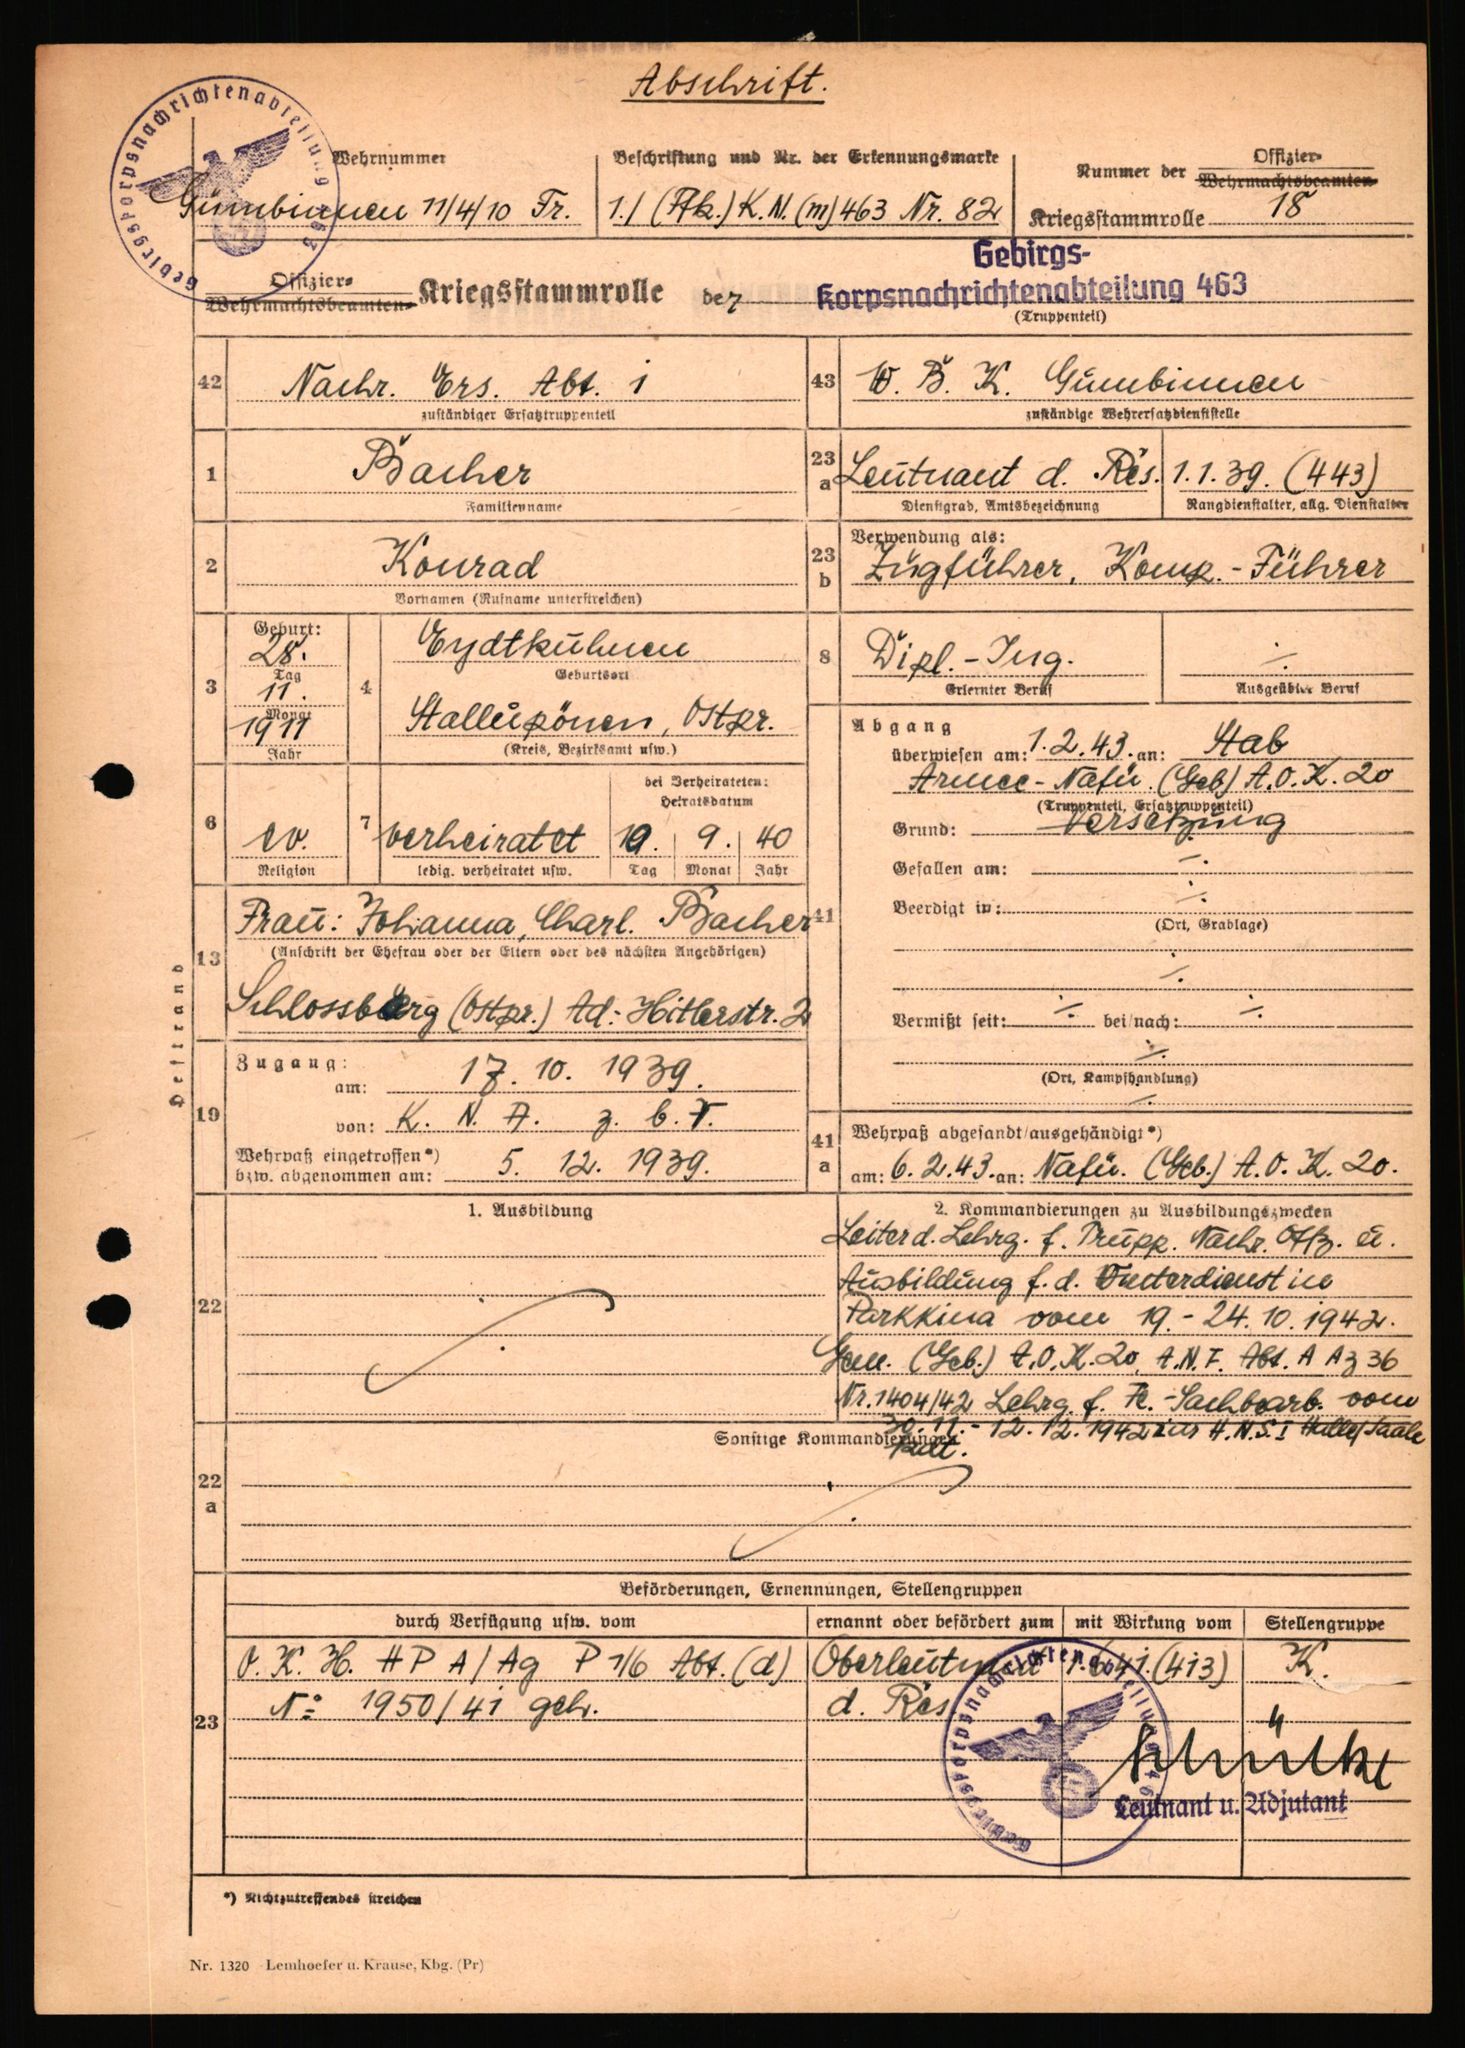 Abschrift.
Gebirgskorpsnachrichtenabteilung 463
Wehrnummer
Gumbinnen 11/4/10 Fr.
Beschriftung und Nr. der Erkennungsmarke
1./ (Ffk.) K.N. (m) 463 Nr. 82
Nummer der Offizier-
Wehrmachtsbeamten-
Kriegsstammrolle 18
Offizier-
Wehrmachtsbeamten-
Kriegsstammrolle der
Gebirgs-
Korpsnachrichtenabteilung 463
(Truppenteil)
42 Nachr. Ers. Abt. 1
zuständiger Ersatztruppenteil
43 W. B. K. Gumbinnen
zuständige Wehrersatzdienststelle
1 Bacher
Familienname
23 a Leutnant d. Res. 1.1.39. (443)
Dienstgrad, Amtsbezeichnung Rangdienstalter, allg. Dienstalter
2 Konrad
Vornamen (Rufname unterstreichen)
23 b Verwendung als:
Zugführer, Komp.-Führer
3 Geburt:
28.
Tag
11.
Monat
1911
Jahr
4 Eydtkuhnen
Geburtsort
Stallupönen, Ostpr.
(Kreis, Bezirksamt usw.)
8 Dipl.-Ing. ./.
Erlernter Beruf Ausgeübter Beruf
6 ev.
Religion
7 verheiratet
ledig. verheiratet usw.
bei Verheirateten:
Heiratsdatum
19. 9. 40
Tag Monat Jahr
13 Frau: Johanna, Charl. Bacher
(Anschrift der Ehefrau oder der Eltern oder des nächsten Angehörigen)
Schlossberg (Ostpr.) Ad.-Hitlerstr. 2
Heftrand
19 Zugang:
am: 17. 10. 1939.
von: K. N. A. z. b. V.
Wehrpaß eingetroffen*)
bzw. abgenommen am: 5. 12. 1939.
41 Abgang
überwiesen am: 1.2.43. an: Stab
Armee-Nafü. (Geb) A.O.K. 20
(Truppenteil, Ersatztruppenteil)
Grund: Versetzung
Gefallen am: ./.
Beerdigt in: ./.
(Ort, Grablage)
./.
Vermißt seit: ./. bei/nach: ./.
./.
(Ort, Kampfhandlung)
./.
41 a Wehrpaß abgesandt/ausgehändigt*)
am: 6.2.43. an: Nafü. (Geb.) A.O.K. 20.
22 1. Ausbildung
2. Kommandierungen zu Ausbildungszwecken
Leiter d. Lehrg. f. Trupp. Nachr. Offz. u.
Ausbildung f. d. Winterdienst in
Parkkina vom 19.-24.10.1942.
Gem. (Geb.) A.O.K. 20, A.N.F. Abt. A Az 36
Nr. 1404/42 Lehrg. f. Fe.-Sachbearb. vom
30.11.-12.12.1942 zur H.N.S. I Halle/Saale
kdt.
22 a Sonstige Kommandierungen
23 Beförderungen, Ernennungen, Stellengruppen
durch Verfügung usw. vom ernannt oder befördert zum mit Wirkung vom Stellengruppe
O. K. H. H P A / Ag P 1/6 Abt. (d) Oberleutnant 1.6.41. (413) K.
No 1950/41 geh. d. Res.
Gebirgskorpsnachrichtenabteilung 463
Leutnant u. Adjutant
*) Nichtzutreffendes streichen
Nr. 1320 Lemhoefer u. Krause, Kbg. (Pr)